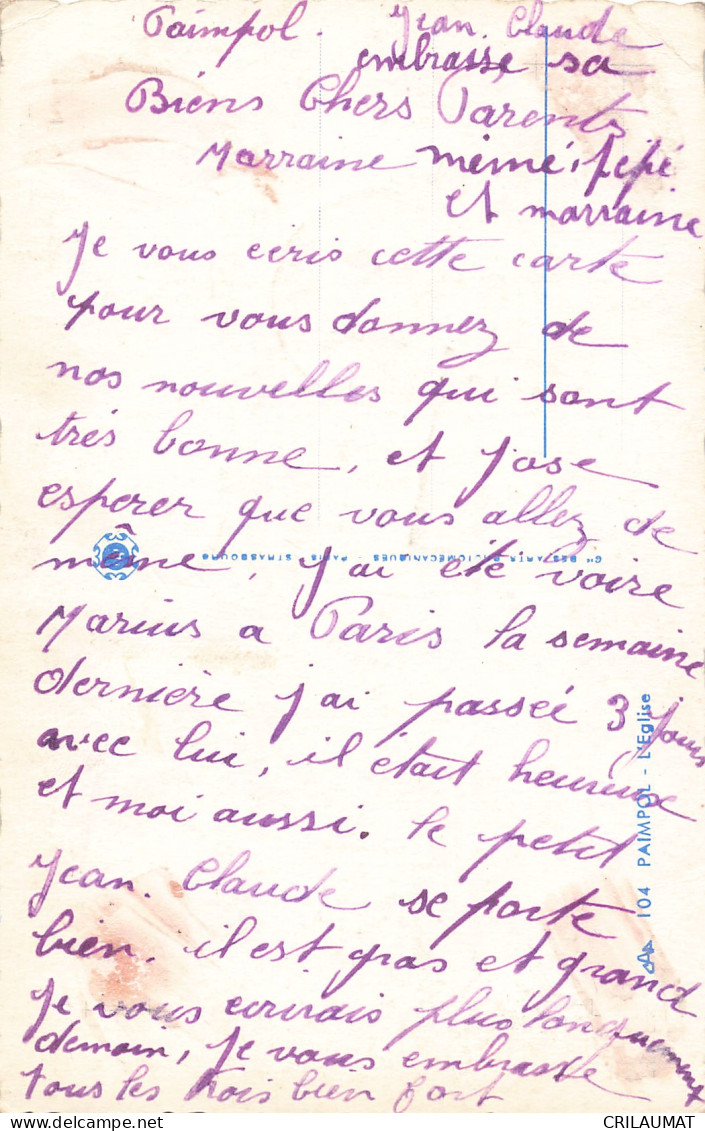 Paimpol. Jean. Claude
embrasse sa
Biens Chers Parents
Marraine mémé, pépé
et marraine
Je vous ecris cette carte
pour vous donnez de
nos nouvelles qui sont
très bonne, et j'ose
esperer que vous allez de
même, j'ai été voire
Marius a Paris la semaine
dernière j'ai passée 3 jours
avec lui, il était heureux
et moi aussi. le petit
Jean. Claude se porte
bien. il est gras et grand
je vous ecrirais plus longuement
demain, je vous embrasse
tous les trois bien fort
Cie DES ARTS PHOTOMÉCANIQUES - PARIS - STRASBOURG
104 PAIMPOL - L'Eglise
CRILAUMAT